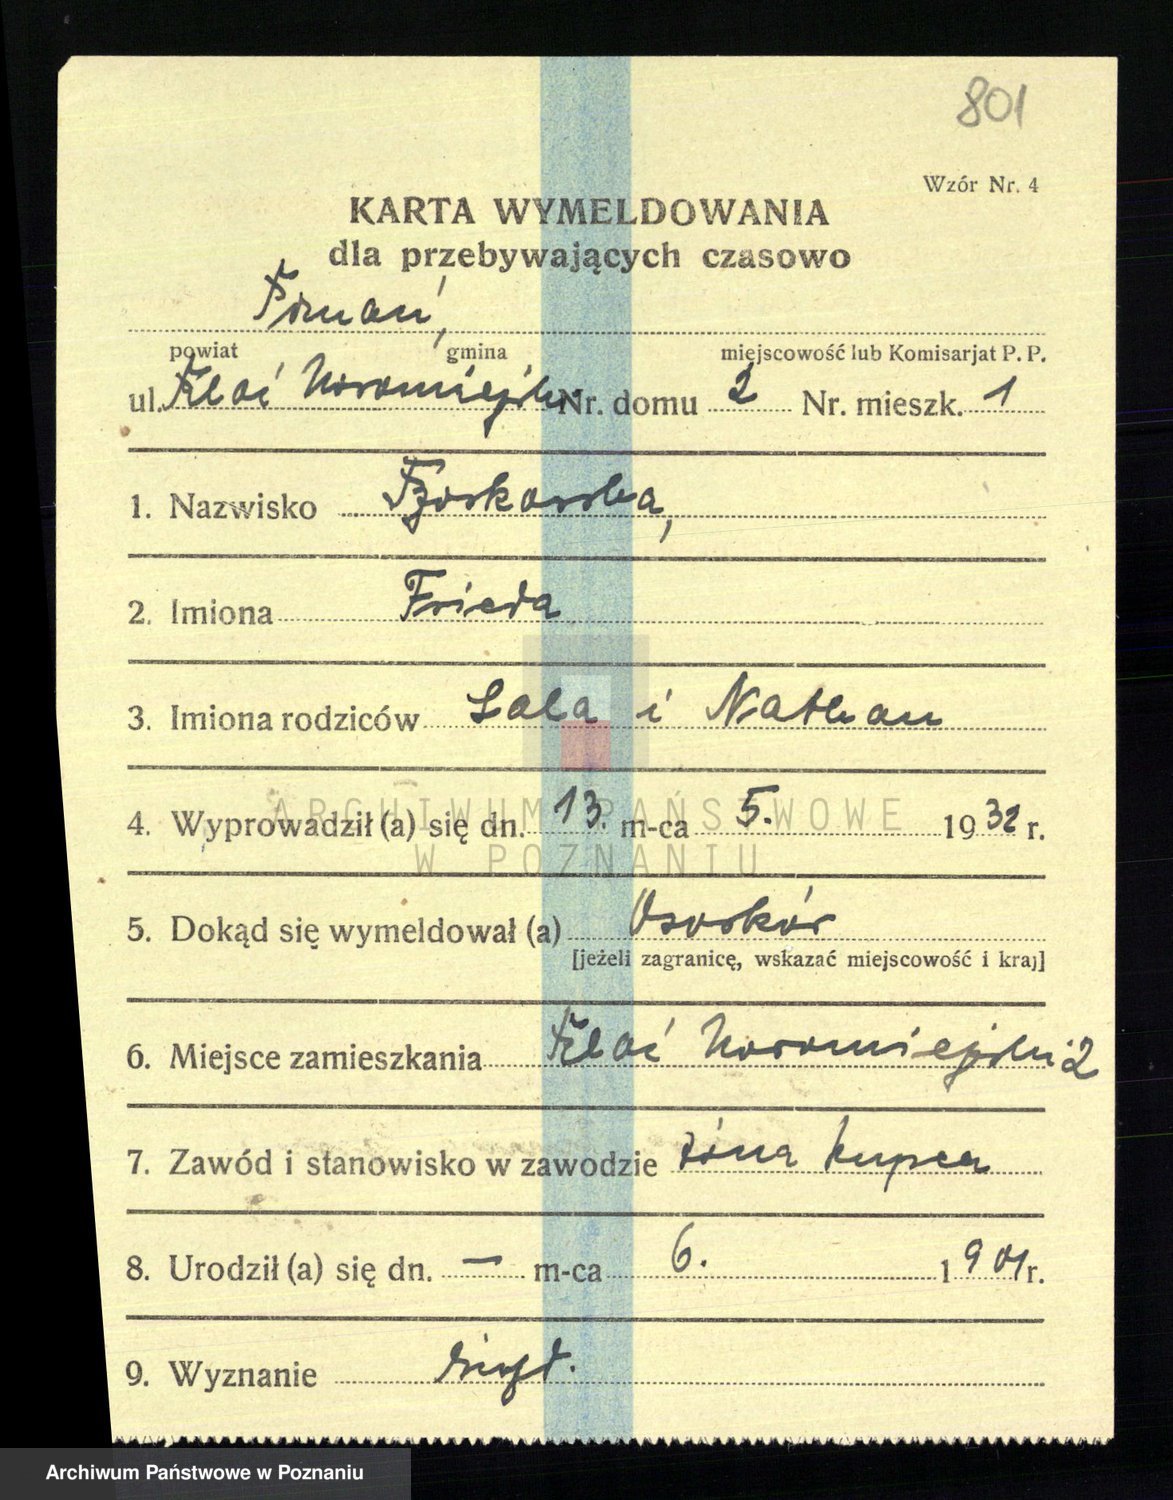 801
Wzór Nr. 4
KARTA WYMELDOWANIA
dla przebywających czasowo
Poznań,
powiat gmina miejscowość lub Komisarjat P. P.
ul. Plac Nowomiejski Nr. domu 2 Nr. mieszk. 1
1. Nazwisko
2. Imiona Frieda
3. Imiona rodziców Lola i Nathan
4. Wyprowadził (a) się dn. 13. m-ca 5. 1932 r.
ARCHIWUM PAŃSTWOWE
W POZNANIU
5. Dokąd się wymeldował (a) Ozorków
[jeżeli zagranicę, wskazać miejscowość i kraj]
6. Miejsce zamieszkania Plac Nowomiejski 2
7. Zawód i stanowisko w zawodzie żona kupca
8. Urodził (a) się dn. — m-ca 6. 1901 r.
9. Wyznanie
Archiwum Państwowe w Poznaniu